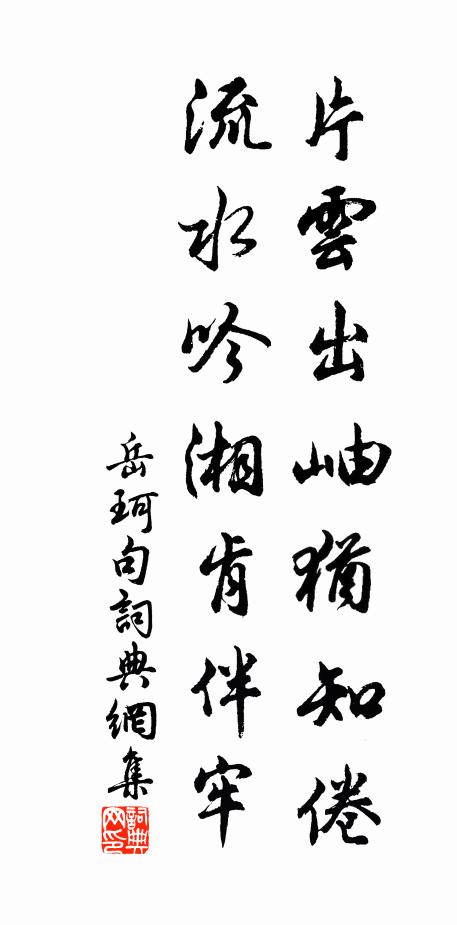 片雲出岫猶知倦
流水吟湘肯伴牢
岳珂句詞典網集
詞典
网印